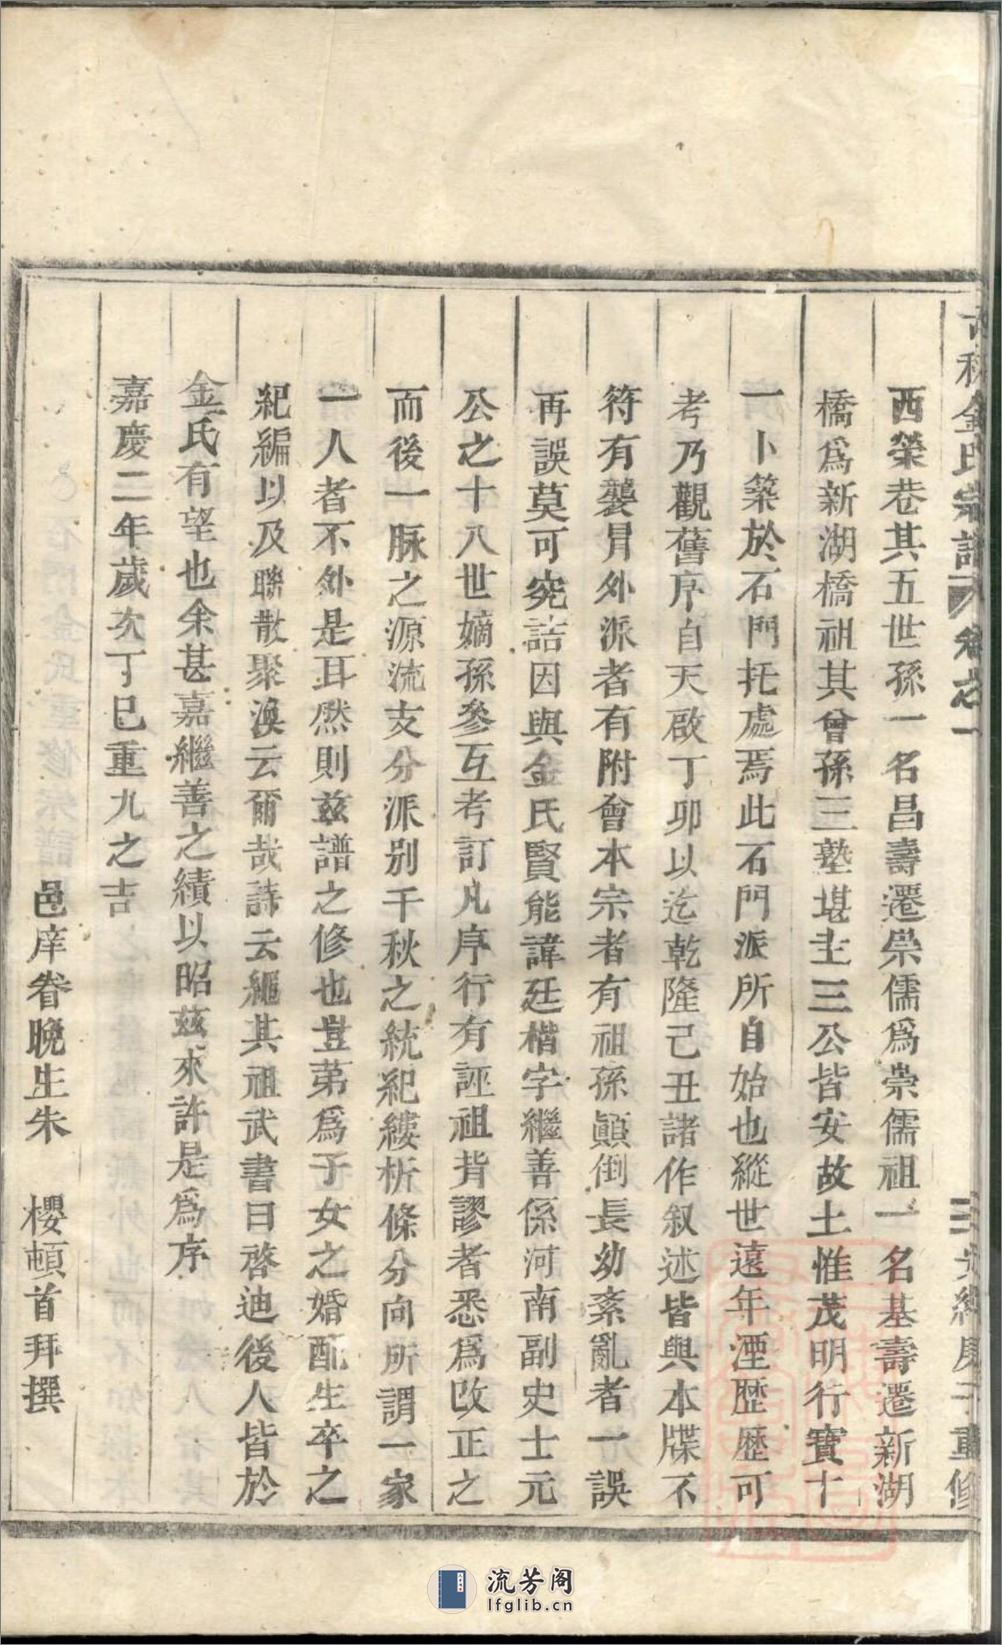 金氏宗譜 卷之一
西榮巷其五世孫一名昌壽遷崇儒爲崇儒祖一名基壽遷新湖
橋爲新湖橋祖其曾孫三塾堪圭三公皆安故土惟茂明行寶十
一卜築於石門托處焉此石門派所自始也縱世遠年湮歷歷可
考乃觀舊序自天啟丁卯以迄乾隆己丑諸作叙述皆與本牒不
符有襲冐外派者有附會本宗者有祖孫顚倒長幼紊亂者一誤
再誤莫可究詰因與金氏賢能諱廷楷字繼善係河南副史士元
公之十八世嫡孫參互考訂凡序行有誣祖背謬者悉爲改正之
而後一脉之源流支分派别千秋之統紀縷析條分向所謂一家
一人者不外是耳然則兹譜之修也豈苐爲子女之婚配生卒之
紀編以及聯散聚渙云爾哉詩云繩其祖武書曰啓迪後人皆於
金氏有望也余甚嘉繼善之績以昭茲來許是爲序
嘉慶二年歲次丁巳重九之吉
邑庠眷晚生朱 櫻頓首拜撰
流芳阁
lfglib.cn